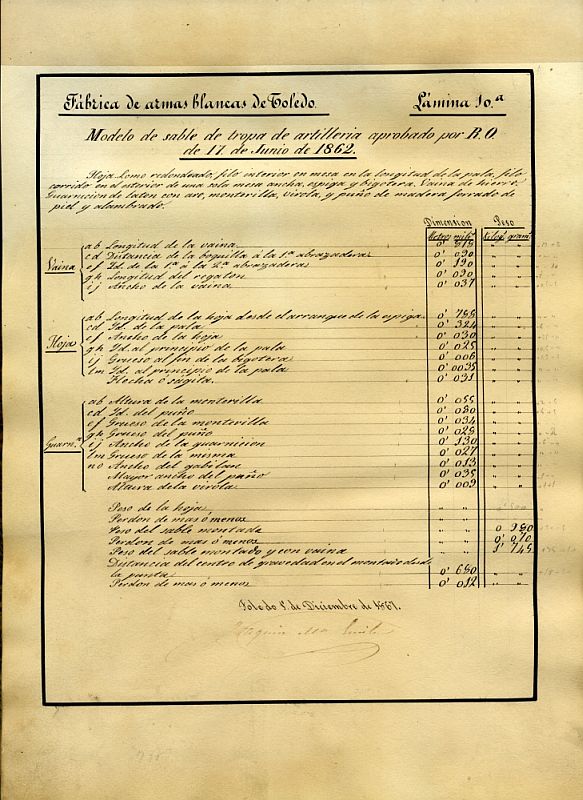 Fábrica de armas blancas de Toledo. Lámina 10.a
Modelo de sable de tropa de artilleria aprobado por R.O.
de 17 de Junio de 1862.
Hoja Lomo redondeado, filo interior en mesa en la longitud de la pala, filo
corrido en el exterior de una sola mesa ancha, espiga y bigotera. Vaina de hierro.
Guarnicion de laton con aro, monterilla, virola, y puño de madera forrado de
piel y alambrado.
Dimension Peso
Metros mili.s Kilog. gram.s
Vaina
ab Longitud de la vaina 0' 818
cd Distancia de la boquilla á la 1.ª abrazadera 0' 090
ef Id. de la 1.ª á la 2.ª abrazaderas 0' 190
gh Longitud del regaton 0' 090
ij Ancho de la vaina 0' 037
Hoja
ab Longitud de la hoja desde el arranque de la espiga 0' 788
cd Id. de la pala 0' 324
ef Ancho de la hoja 0' 030
gh Id. al principio de la pala 0' 025
ij Grueso al fin de la bigotera 0' 006
lm Id. al principio de la pala 0' 0035
Flecha ó sagita 0' 031
Guarn.n
ab Altura de la monterilla 0' 055
cd Id. del puño 0' 080
ef Grueso de la monterilla 0' 034
gh Grueso del puño 0' 028
ij Ancho de la guarnicion 0' 130
lm Grueso de la misma 0' 027
no Ancho del gabilan 0' 013
Mayor ancho del puño 0' 035
Altura de la virola 0' 009
Peso de la hoja " " " "
Perdon de mas ó menos " " " "
Peso del sable montado " " 0 980
Perdon de mas ó menos " " 0' 070
Peso del sable montado y con vaina " " 1' 745
Distancia del centro de gravedad en el montado desde
la punta 0' 680
Perdon de mas ó menos 0' 012
Toledo 8 de Diciembre de 1867.
Joaquin M.a